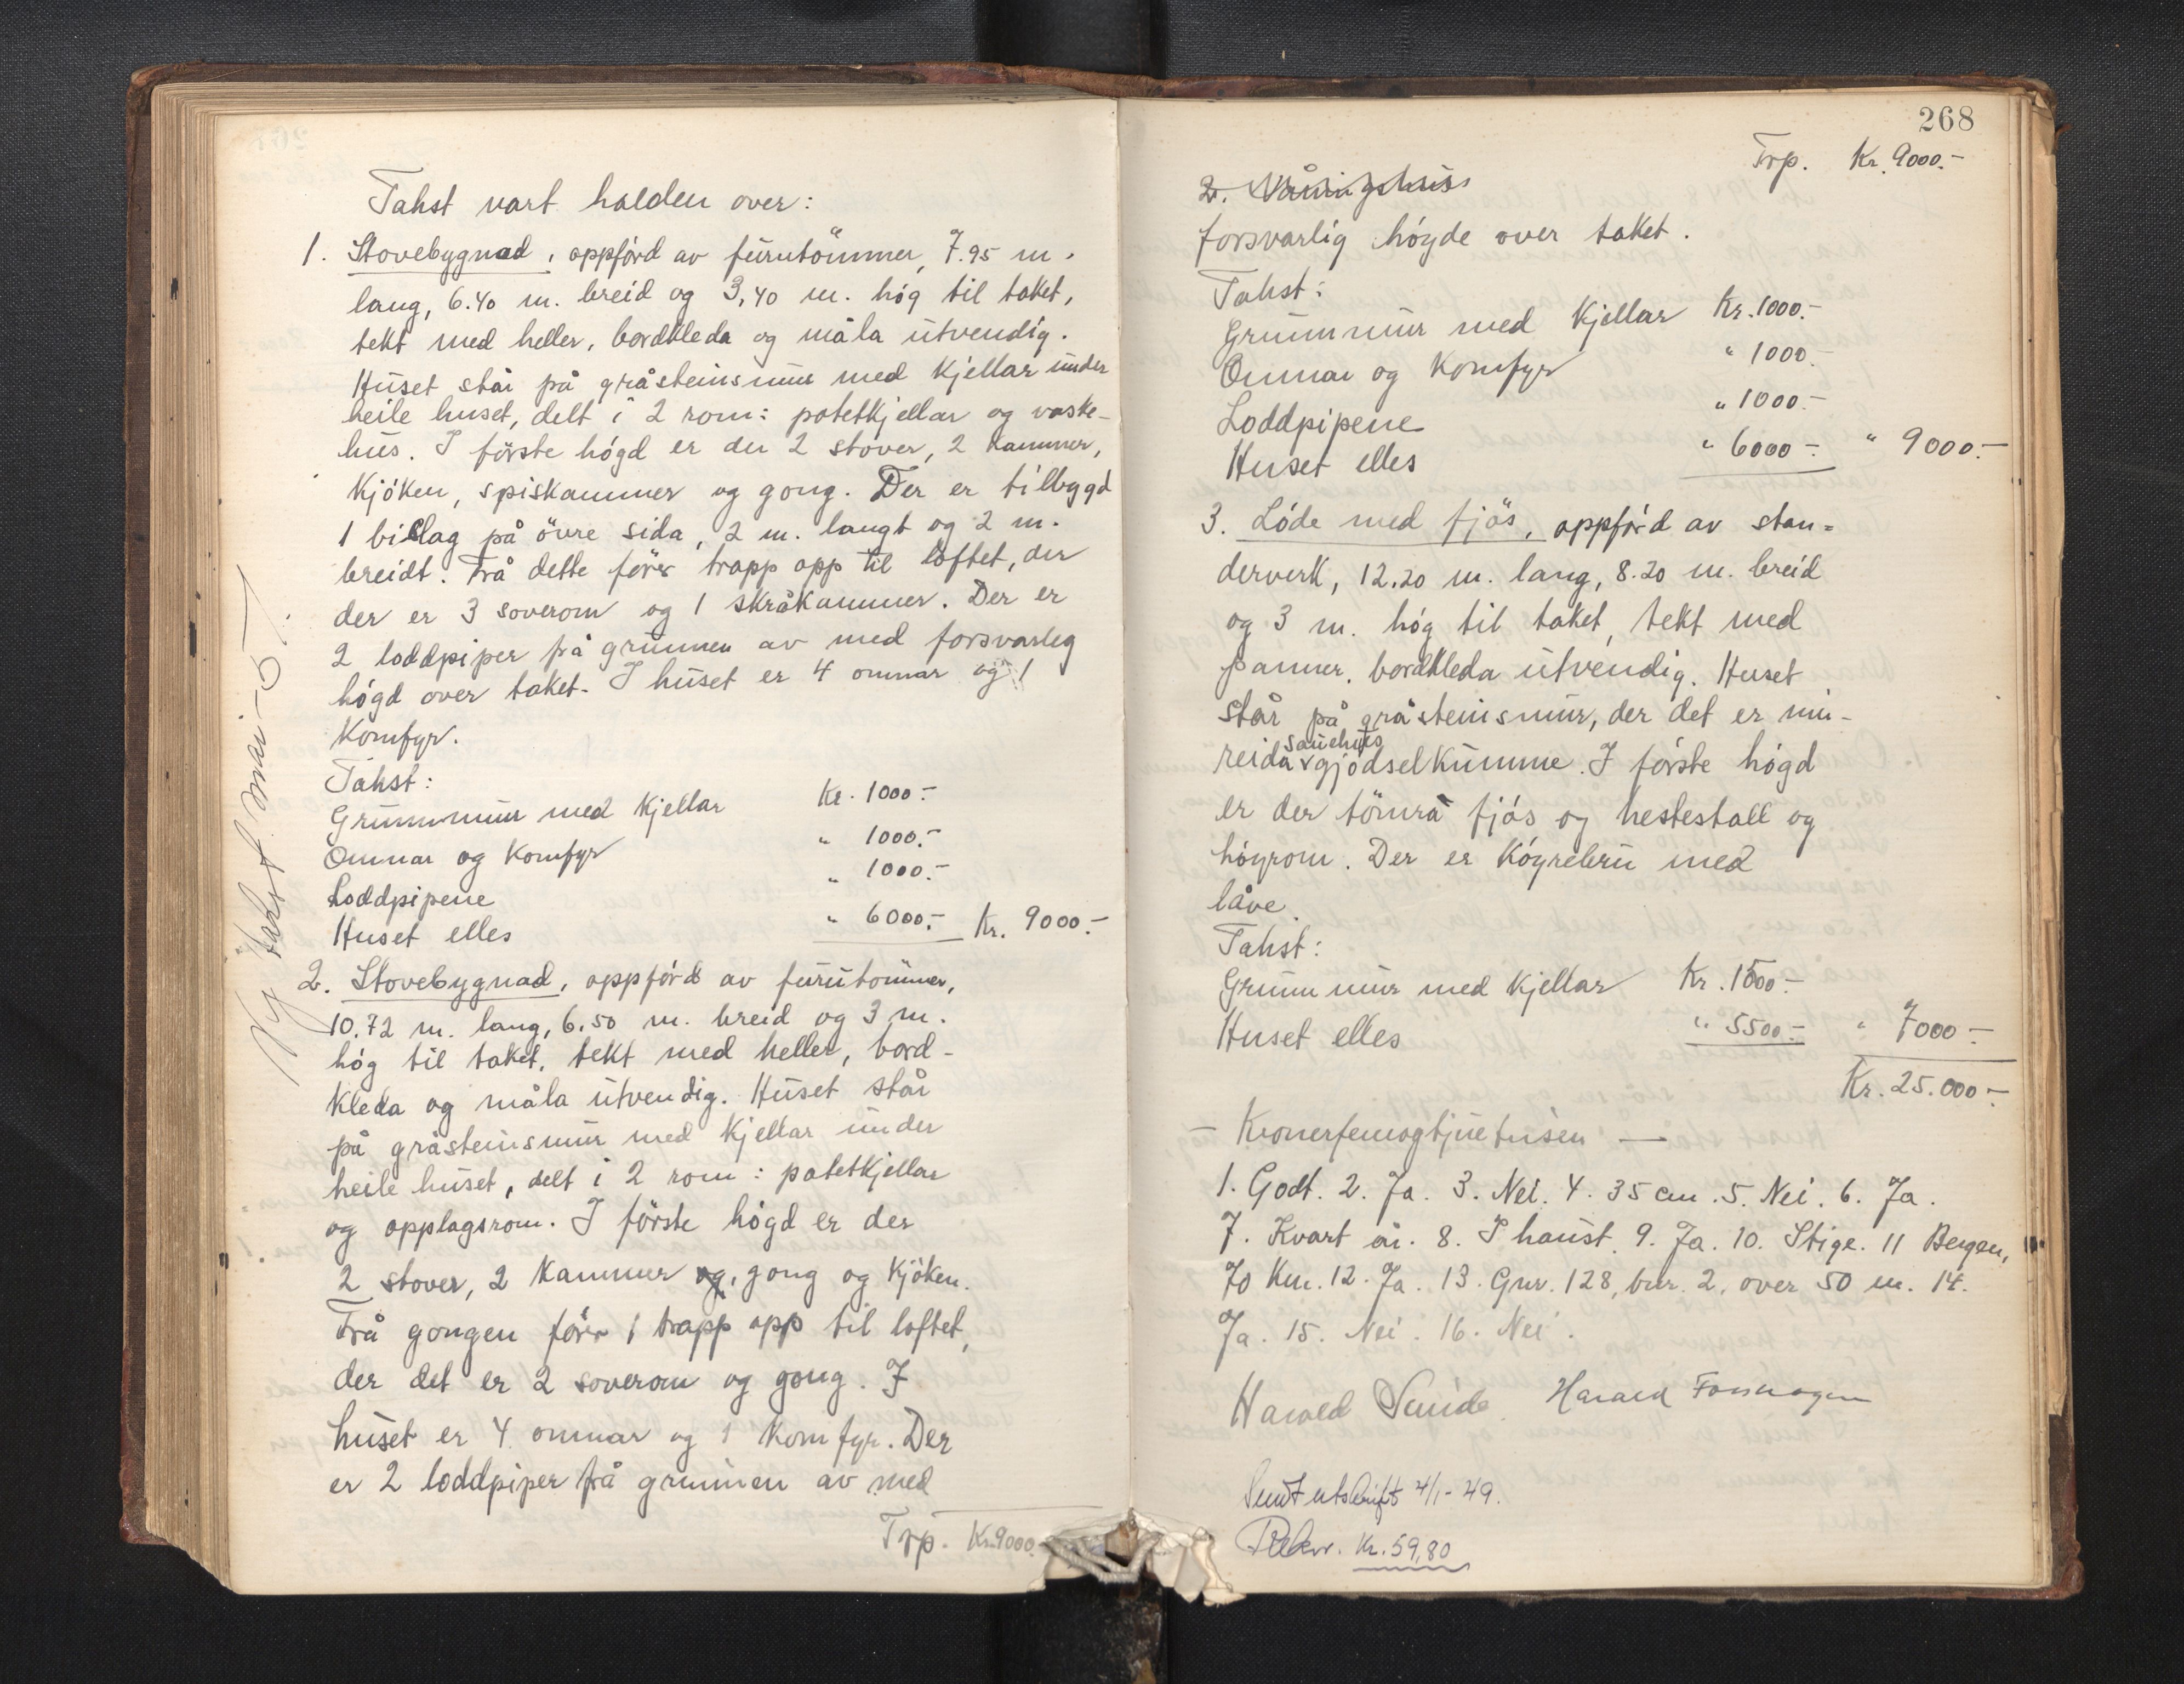 Takst vart halden over:
1. Stovebygnad, oppförd av furutömmer, 7.95 m.
lang, 6.40 m. breid og 3,40 m. høg til taket,
tekt med heller, bordkleda og måla utvendig.
Huset står på gråsteinsmur med kjellar under
heile huset, delt i 2 rom: potetkjellar og vaske-
hus. I förste högd er der 2 stover, 2 kammer,
kjöken, spiskammer og gong. Der er tilbygd
1 bislag på övre sida, 2 m. langt og 2 m.
breidt. Frå dette förer trapp opp til loftet, der
der er 3 soverom og 1 skråkammer. Der er
2 loddpiper frå grunnen av med forsvarleg
högd over taket. I huset er 4 omnar og 1
Komfyr.
Takst:
Grunnmur med kjellar Kr. 1000.-
Omnar og komfyr " 1000.-
Loddpipene " 1000.-
Huset elles " 6000.- Kr. 9000.-
2. Stovebygnad, oppförd av furutömmer,
10.72 m. lang, 6.50 m. breid og 3 m.
høg til taket, tekt med heller, bord-
kleda og måla utvendig. Huset står
på gråsteinsmur med kjellar under
heile huset, delt i 2 rom: potetkjellar
og opplagsrom. I förste högd er der
2 stover, 2 kammer og, gong og kjöken.
Frå gongen förer 1 trapp opp til loftet,
der det er 2 soverom og gong. I
huset er 4 omnar og 1 komfyr. Der
er 2 loddpiper frå grunnen av med
Trp. Kr. 9000.-
Ny takst mai-57.
268
Trp. Kr. 9000.-
2. Våningshus
forsvarlig högde over taket.
Takst:
Grunnmur med kjellar Kr. 1000.-
Omnar og komfyr " 1000.-
Loddpipene " 1000.-
Huset elles " 6000.- " 9000.-
3. Löde med fjös, oppförd av stan=
derverk, 12.20 m. lang, 8.20 m. breid
og 3 m. høg til taket, tekt med
panner, bordkleda utvendig. Huset
står på gråsteinsmur, der det er inn-
reida sauehus gjödselkumme. I förste högd
er der tömra fjös og hestestall og
höyrom. Der er köyrebru med
låve.
Takst:
Grunnmur med kjellar Kr. 1500.-
Huset elles " 5500.- " 7000.-
Kr. 25.000.-
- Kronerfemogtjuetusen -
1. Godt. 2. Ja. 3. Nei. 4. 35 cm. 5. Nei. 6. Ja.
7. Kvart år. 8. I haust. 9. Ja. 10. Stige. 11 Bergen,
70 Km. 12. Ja. 13. Gnr. 128, bnr. 2, over 50 m. 14.
Ja. 15. Nei. 16. Nei.
Harald Sunde. Harald
Sendt utskrift 4/1-49.
Rekv. Kr. 59,80